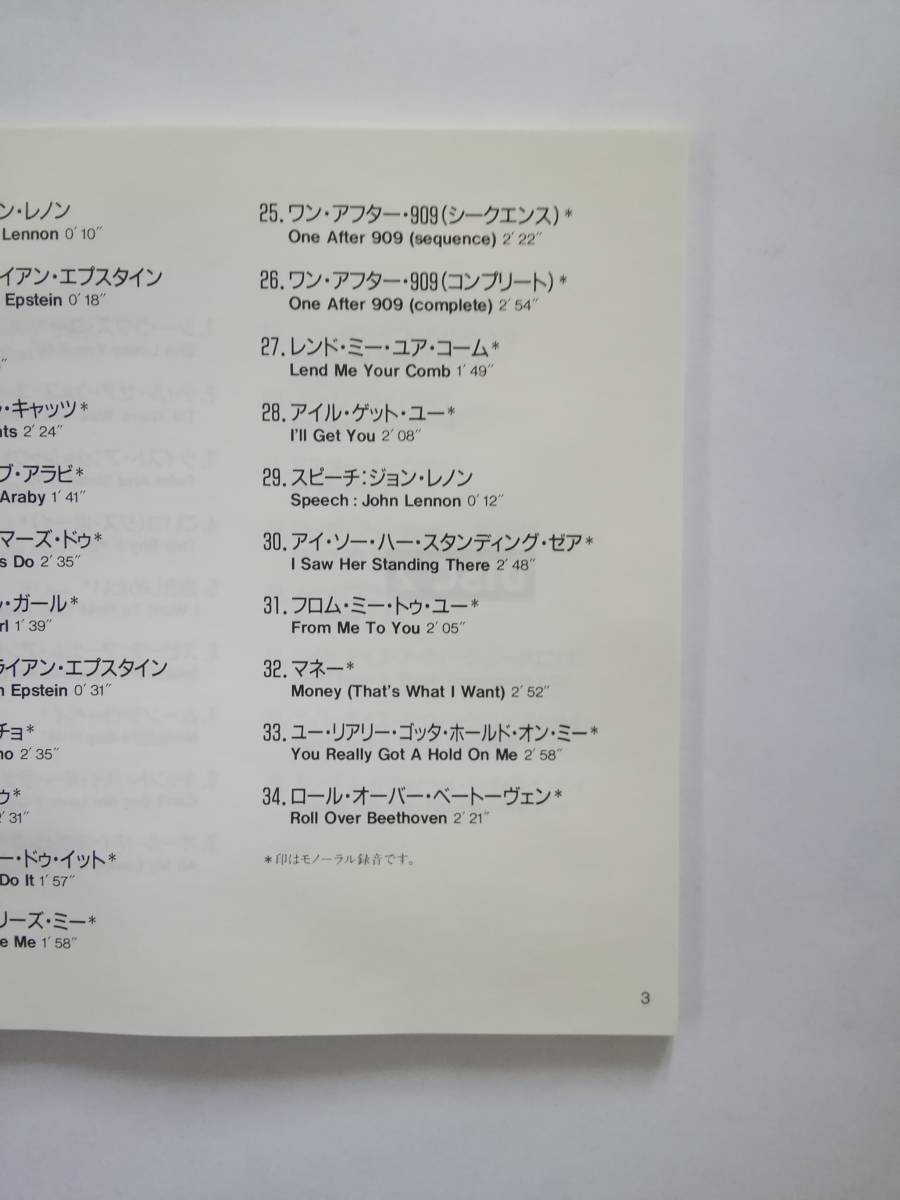 ン・レノン
Lennon 0′10″
イアン・エプスタイン
Epstein 0′18″
・キャッツ*
2′24″
ブ・アラビ*
Araby 1′41″
マーズ・ドゥ*
s Do 2′35″
・ガール*
rl 1′39″
ライアン・エプスタイン
n Epstein 0′31″
チョ*
no 2′35″
ゥ*
2′31″
ー・ドゥ・イット*
Do It 1′57″
リーズ・ミー*
e Me 1′58″
25.ワン・アフター・909(シークエンス)*
One After 909 (sequence) 2′22″
26.ワン・アフター・909(コンプリート)*
One After 909 (complete) 2′54″
27.レンド・ミー・ユア・コーム*
Lend Me Your Comb 1′49″
28.アイル・ゲット・ユー*
I'll Get You 2′08″
29.スピーチ:ジョン・レノン
Speech : John Lennon 0′12″
30.アイ・ソー・ハー・スタンディング・ゼア*
I Saw Her Standing There 2′48″
31.フロム・ミー・トゥ・ユー*
From Me To You 2′05″
32.マネー*
Money (That's What I Want) 2′52″
33.ユー・リアリー・ゴッタ・ホールド・オン・ミー*
You Really Got A Hold On Me 2′58″
34.ロール・オーバー・ベートーヴェン*
Roll Over Beethoven 2′21″
*印はモノーラル録音です。
3